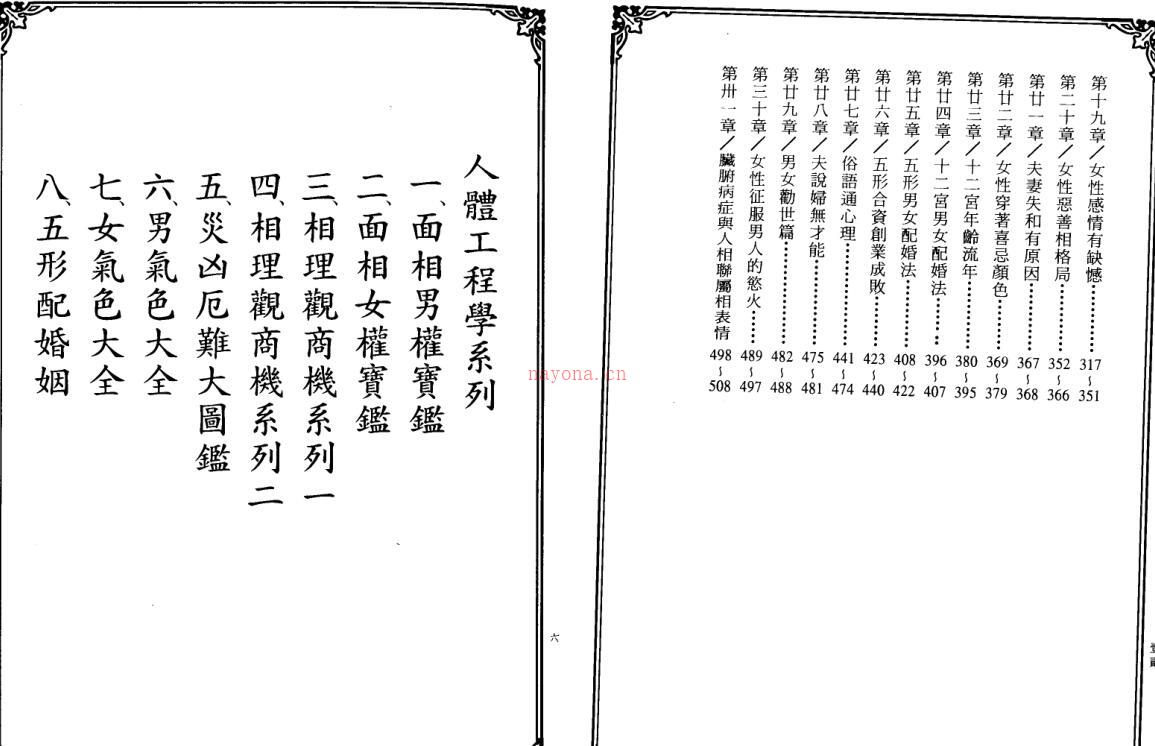 第十九章／女性感情有缺憾⋯⋯⋯⋯317~351
第二十章／女性惡善相格局⋯⋯⋯⋯352~366
第廿一章／夫妻失和有原因⋯⋯⋯⋯367~368
第廿二章／女性穿著喜忌顏色⋯⋯⋯369~379
第廿三章／十二宮年齡流年⋯⋯⋯⋯380~395
第廿四章／十二宮男女配婚法⋯⋯⋯396~407
第廿五章／五形男女配婚法⋯⋯⋯⋯408~422
第廿六章／五形合資創業成敗⋯⋯⋯423~440
第廿七章／俗語通心理⋯⋯⋯⋯⋯⋯441~474
第廿八章／夫說婦無才能⋯⋯⋯⋯⋯475~481
第廿九章／男女勸世篇⋯⋯⋯⋯⋯⋯482~488
第三十章／女性征服男人的慾火⋯⋯489~497
第卅一章／臟腑病症與人相聯屬相表情498~508
六
人體工程學系列
一、面相男權寶鑑
二、面相女權寶鑑
三、相理觀商機系列一
四、相理觀商機系列二
五、災凶厄難大圖鑑
六、男氣色大全
七、女氣色大全
八、五形配婚姻
nayona.cn